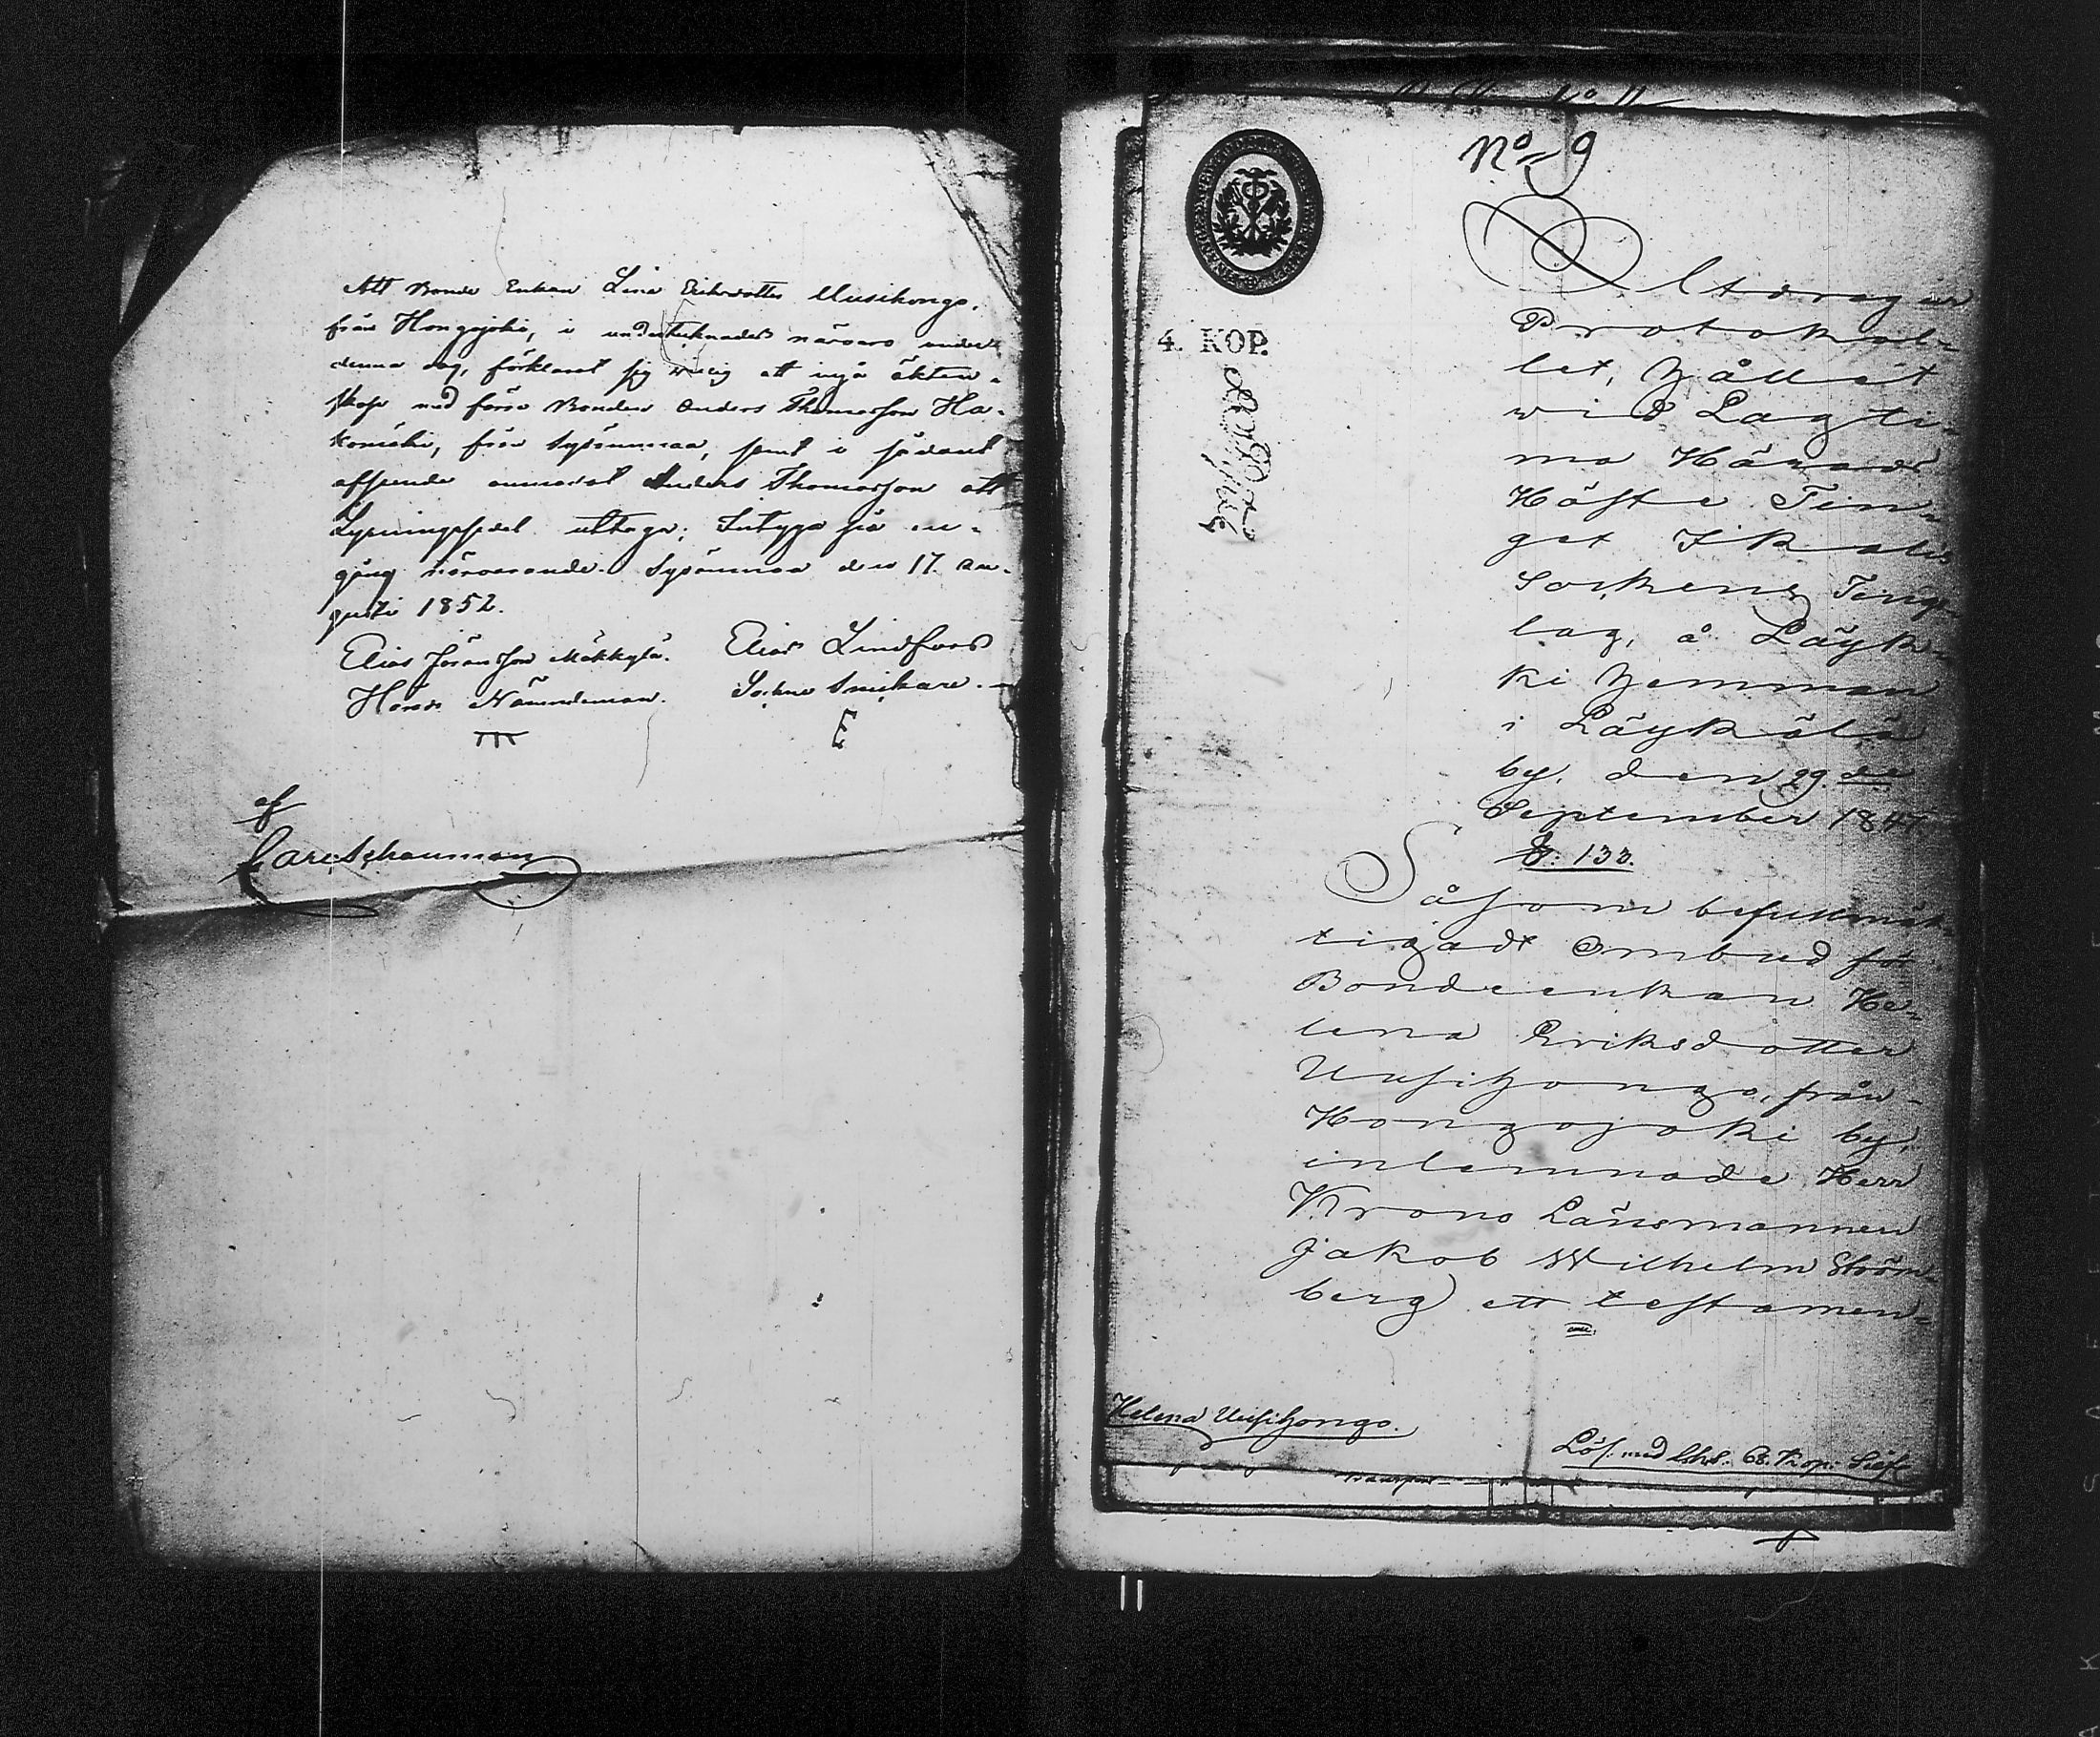 Att Bonde Enkan Lina Eriksdotter Uusihongo,
från Hongojoki, i undertecknades närvaro under
denna dag, förklarat sig willig att ingå äkten-
skap med förre Bonden Anders Thomasson Ha-
komäki, från Sydänmaa, samt i sådant
afseende anmodat Anders Thomasson att
Lysningssedel uttaga; Intyga på en-
gång närvarande. Sydänmaa den 17. Au-
gusti 1852.
Elias Jöransson Mäkkylä. Elias Lindfors
Härads Nämndeman. Sockne Snickare.
af
Carl Schauman
No 9
4. KOP.
Utdrag ur
Protokol-
let, hållet
wid Lagti-
ma Härads
Höste Tin-
get Ikalis
Sockens Tings-
lag, å Läyk-
ki hemman
i Läykälä
by, den 29.de
September 1847
§: 133.
Såsom befullmäk-
tigadt Ombud för
Bondeenkan He-
lena Eriksdotter
Uusihongo, från
Hongojoki by,
inlemnade Herr
Krono Länsmannen
Jakob Wilhelm Ström-
berg ett testamen-
Helena Uusihongo.
Lös. med 68. Kop. Silfr